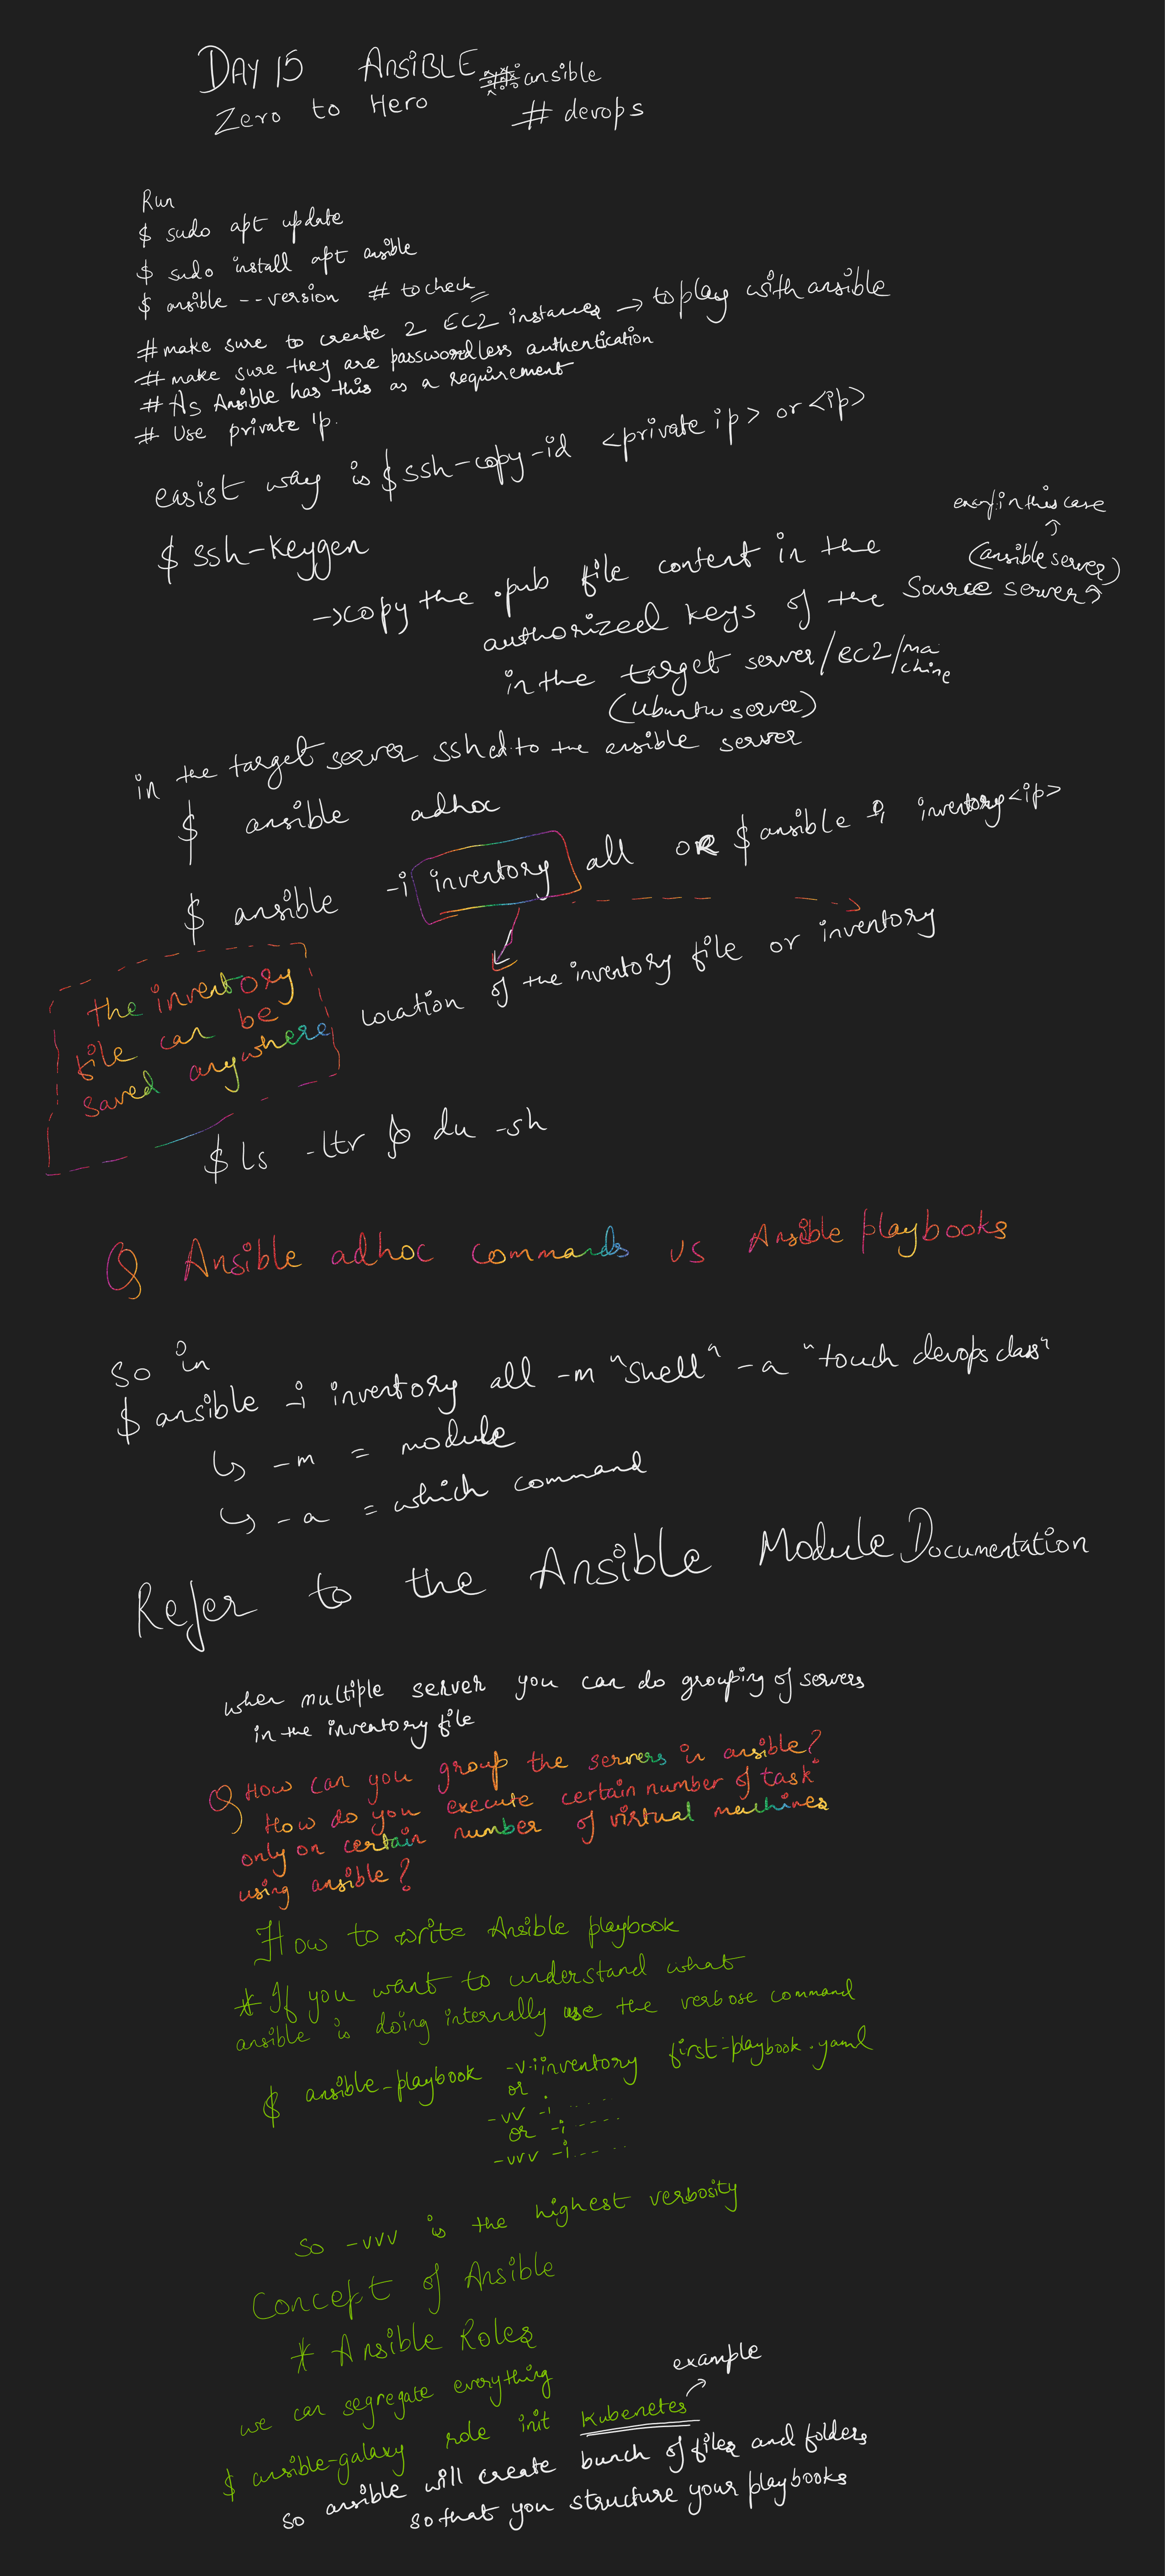 DAY 15 ANSIBLE ansible
Zero to Hero # devops
Run
$ sudo apt update
$ sudo install apt ansible
$ ansible --version # to check
# make sure to create 2 EC2 instances → to play with ansible
# make sure they are passwordless authentication
# As Ansible has this as a requirement
# Use private ip.
easist way is $ ssh-copy-id <private ip> or <ip>
$ ssh-keygen
→ copy the .pub file content in the
authorized keys of the source server →
(ansible server)
in this case
in the target server/EC2/ma
chine
(Ubuntu server)
in the target server sshd to the ansible server
$ ansible adhoc
$ ansible -i inventory all OR $ ansible -i inventory <ip>
location of the inventory file or inventory
the inventory
file can be
saved anywhere
$ ls -ltr $ du -sh
Q Ansible adhoc commands vs Ansible playbooks
so in
$ ansible -i inventory all -m "shell" -a "touch devops class"
↳ -m = module
↳ -a = which command
Refer to the Ansible Module Documentation
when multiple server you can do grouping of servers
in the inventory file
Q How can you group the servers in ansible?
How do you execute certain number of task
only on certain number of virtual machines
using ansible?
How to write Ansible playbook
* If you want to understand what
ansible is doing internally use the verbose command
$ ansible-playbook -v -i inventory first-playbook.yaml
or
-vv -i .....
or -i ----
-vvv -i .....
So -vvv is the highest verbosity
Concept of Ansible
* Ansible Roles
we can segregate everything
example
$ ansible-galaxy role init Kubenetes
so ansible will create bunch of files and folders
so that you structure your playbooks